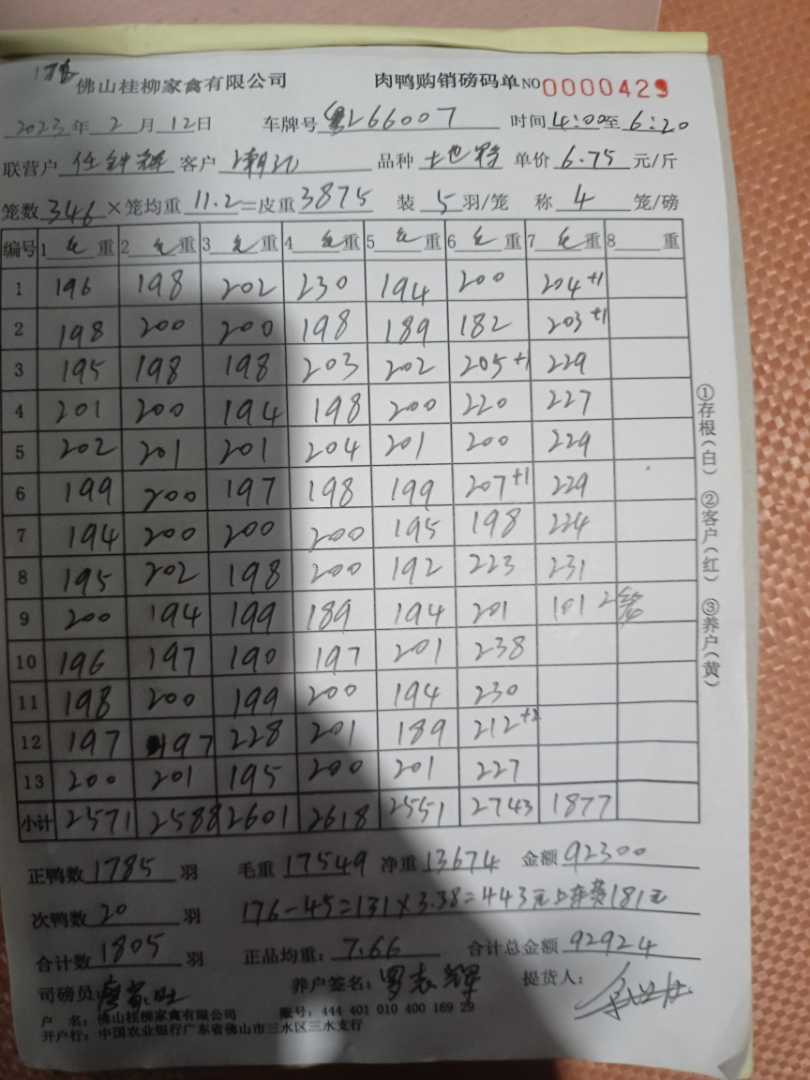 佛山桂柳家禽有限公司 肉鸭购销磅码单 NO 0000429
2023年2月12日 车牌号 粤L66007 时间4:00至6:20
联营户 客户 品种 单价6.75元/斤
笼数346×笼均重11.2=皮重3875 装5羽/笼 称4笼/磅
编号 1 毛重 2 毛重 3 毛重 4 毛重 5 毛重 6 毛重 7 毛重 8 重
1 196 198 202 230 194 200 204+1
2 198 200 200 198 189 182 203+1
3 195 198 198 203 202 205+1 229
4 201 200 194 198 200 220 227
5 202 201 201 204 201 200 229
6 199 200 197 198 199 207+1 229
7 194 200 200 200 195 198 224
8 195 202 198 200 192 223 231
9 200 194 199 189 194 201 101 2笼
10 196 197 190 197 201 238
11 198 200 199 200 194 230
12 197 197 228 201 189 212+2
13 200 201 195 200 201 227
小计 2571 2588 2601 2618 2551 2743 1877
①存根(白) ②客户(红) ③养户(黄)
正鸭数1785羽 毛重17549 净重13674 金额92300
次鸭数20羽 176-45=131×3.38=443元上车费181元
合计数1805羽 正品均重:7.66 合计总金额92924
司磅员: 养户签名: 提货人:
户 名:佛山桂柳家禽有限公司 账号:444 401 010 400 169 29
开户行:中国农业银行广东省佛山市三水区三水支行